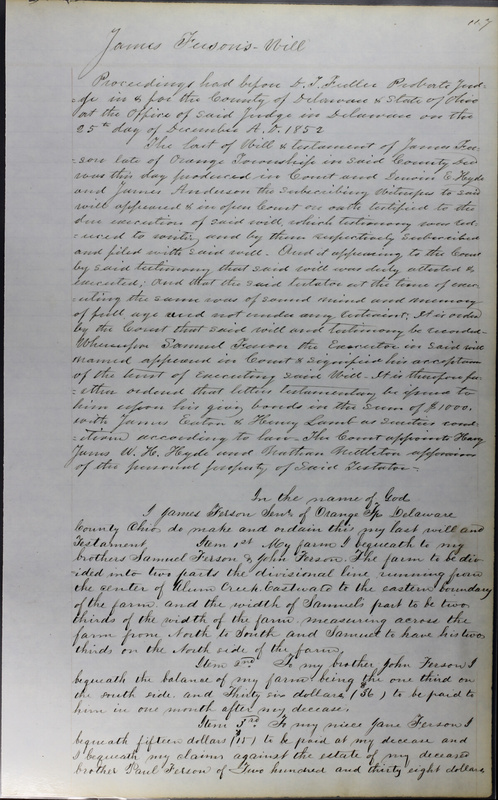 117
James Ferson's Will
Proceedings had before D. T. Fuller Probate Jud-
-ge in & for the County of Delaware & State of Ohio
at the office of said Judge in Delaware on the
25th day of December A.D. 1852
The last of Will & testament of James Fer-
son late of Orange Township in said County Decd
was this day produced in Court and E. Hyde
and James Anderson the subscribing Witnesses to said
will appeared & in open Court on oath testified to the
due execution of said will which testimony was red-
-uced to writing and by them respectively subscribed
and filed with said will. And it appearing to the Court
by said testimony that said will was duly attested &
executed; And that the said testator at the time of exec-
-uting the same was of sound mind and memory
of full age and not under any restraint; It is ordered
by the Court that said will and testimony be recorded
Whereupon Samuel Ferson the Executor in said will
named appeared in Court & signified his acceptance
of the trust of Executing said Will. It is therefore fur-
-ther ordered that letters testamentary be issued to
him upon his giving bonds in the sum of $1000.
with James Eaton & Henry Lamb as sureties cond-
-itioned according to law. The Court appoints Harry
W. H. Hyde and Nathan Nettleton appraisers
of the personal property of said Testator-
In the name of God
I James Ferson Senr. of Orange Tp Delaware
County Ohio do make and ordain this my last will and
Testament. Item 1st My farm I bequeath to my
brothers Samuel Ferson & John Ferson. The farm to be div-
-ided into two parts the divisional line running from
the center of Alum Creek Eastward to the eastern boundary
of the farm. and the width of Samuels part to be two
thirds of the width of the farm measuring across the
farm from North to South and Samuel to have his two
thirds on the North side of the farm,
Item 2nd To my brother John Ferson I
bequeath the balance of my farm being the one third on
the south side. and Thirty six dollars (36) to be paid to
him in one month after my decease.
Item 3rd To my niece Jane Ferson I
bequeath fifteen dollars (15) to be paid at my decease and
I bequeath my claims against the estate of my deceased
brother Paul Ferson of Two hundred and thirty eight dollars